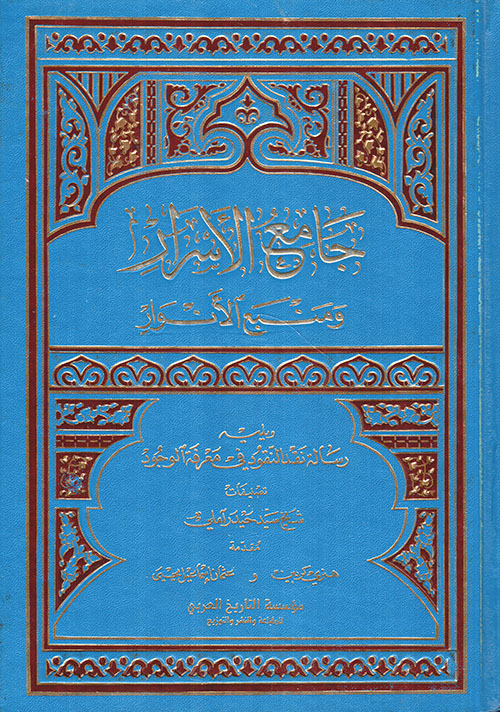 جامع الأسرار
ومنبع الأنوار
ويليه
رسالة نقد النقود في معرفة الوجود
تصنيفات
شيخ سيد حيدر آملي
مقدمة
هنري كربين و عثمان إسماعيل يحيى
مؤسسة التاريخ العربي
للطباعة والنشر والتوزيع